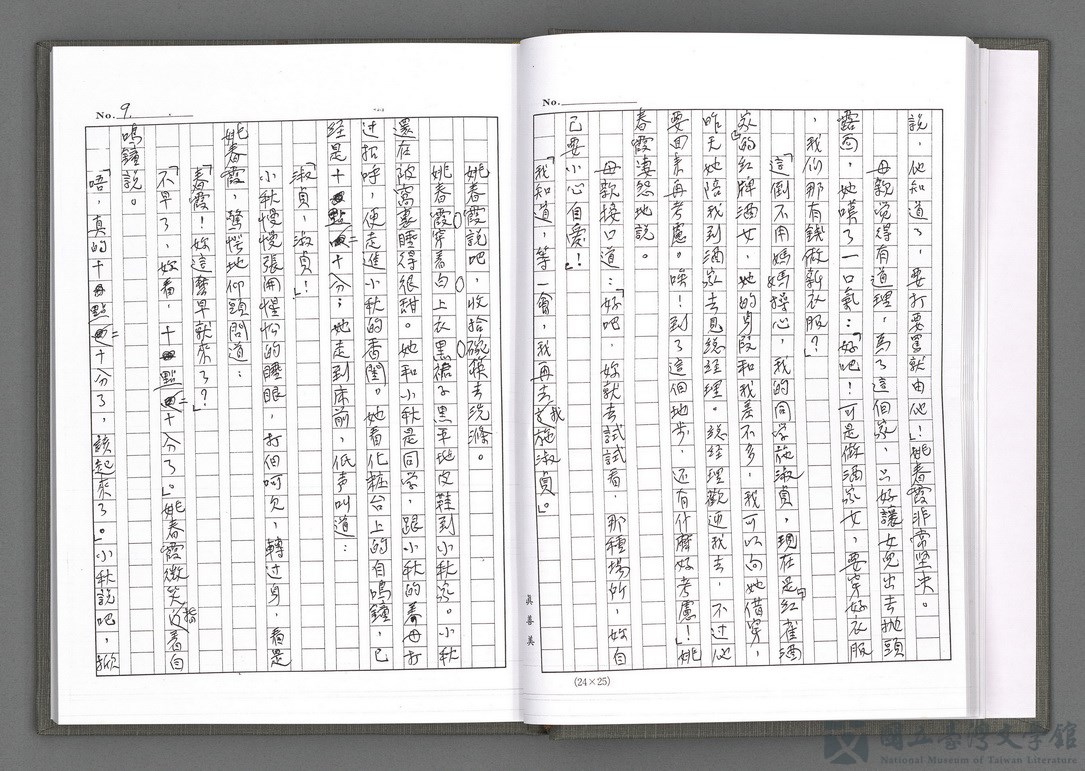 No.
說，他知道了，要打要罵就由他！」姚春霞非常坚决。
母親覚得有道理，為了這個家，只好讓女兒出去抛頭
露面，她嘆了一口氣：「好吧！可是做酒家女，要穿好衣服
，我们那有錢做新衣服？」
「這倒不用媽媽操心，我的同学施淑貞，現在是紅雀酒
家的紅牌酒女，她的身段和我差不多，我可以向她借穿，
昨天她陪我到酒家去見總經理。總經理歡迎我去，不过他
要回來再考慮。唉！到了這個地步，还有什麼好考慮！」姚
春霞凄怨地說。
母親接口道：「好吧，妳就去試試看，那種場所，妳自
己要小心自愛！」
「我知道，等一會，我再去找施淑貞。」
(24×25)
眞善美
No. 9
姚春霞說吧，收拾碗筷去洗滌。
姚春霞穿着白上衣黑裙子黑平地皮鞋到小秋家。小秋
還在被窩裏睡得很甜。她和小秋是同学，跟小秋的養母打
过招呼，便走進小秋的香閨。她看化粧台上的自鳴鐘，已
経是十二點二十分；她走到床前，低声叫道：
「淑貞，淑貞！」
小秋慢慢張開惺忪的睡眼，打個呵欠，轉过身，看是
姚春霞，驚愕地仰頭問道：
「春霞！妳這麼早就來了？」
「不早了，妳看，十二點二十分了。」姚春霞微笑指着自
鳴鐘說。
「唔，真的十二點二十分了，該起來了。」小秋說吧，掀
國立臺灣文學館
National Museum of Taiwan Literature